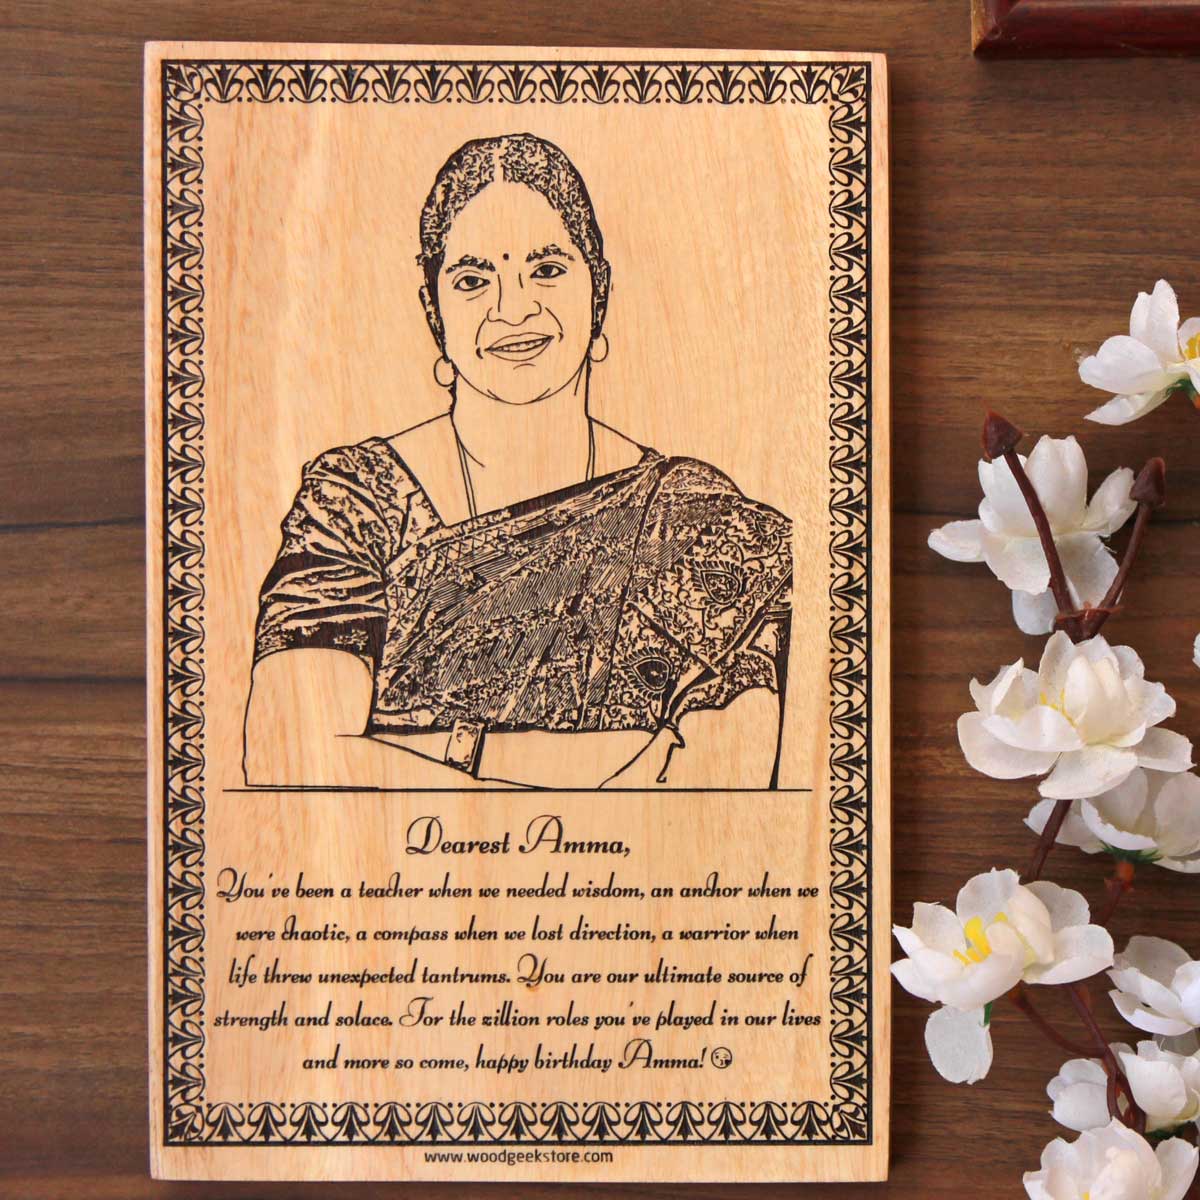 Dearest Amma,
You've been a teacher when we needed wisdom, an anchor when we
were chaotic, a compass when we lost direction, a warrior when
life threw unexpected tantrums. You are our ultimate source of
strength and solace. For the zillion roles you've played in our lives
and more so come, happy birthday Amma! 😘
www.woodgeekstore.com